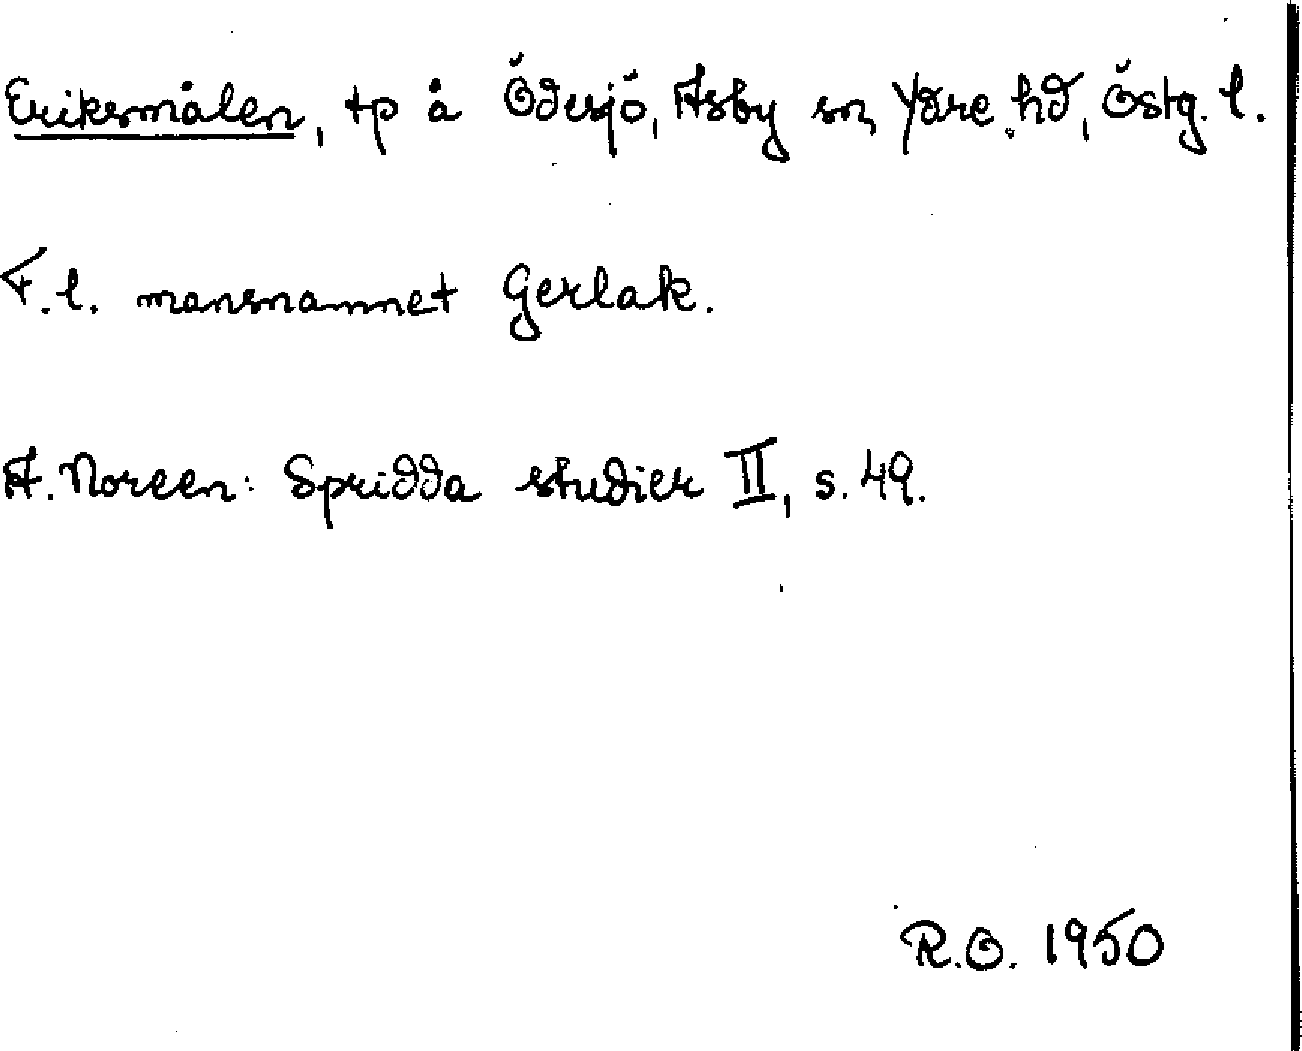 Eriksmålen, tp å Ödesjö, Asby sn, Ydre hd, Östg. l.
F. l. mansnamnet Gerlak.
A. Noreen: Spridda studier II, s. 49.
R.O. 1950